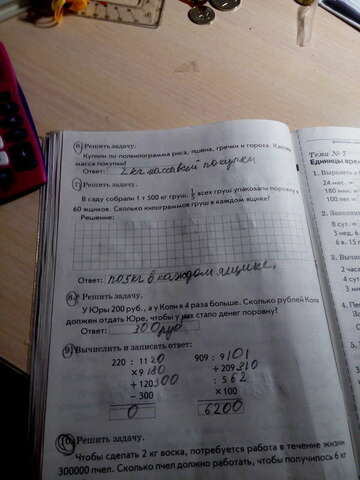 6) Решить задачу.
Купили по полкилограмма риса, пшена, гречки и гороха. Какова
масса покупки?
Ответ: 2 кг массовой покупки
7) Решить задачу.
В саду собрали 1 т 500 кг груш. 1/5 всех груш упаковали поровну в
60 ящиков. Сколько килограммов груш в каждом ящике?
Решение:
Ответ: по 5 кг в каждом ящике.
8. Решить задачу.
У Юры 200 руб., а у Коли в 4 раза больше. Сколько рублей Коля
должен отдать Юре, чтобы у них стало денег поровну?
Ответ: 300 руб
9) Вычислить и записать ответ:
220 : 11 20 909 : 9 101
×9 180 + 209 310
+ 120 300 : 5 62
− 300 ×100
0 6200
10) Решить задачу.
Чтобы сделать 2 кг воска, потребуется работа в течение жизни
300000 пчел. Сколько пчел должно работать, чтобы получилось 6 кг
Тема № 5
Единицы вре
1. Выразить
24 мес. =
180 мин.
100 лет =
8 сут. =
3 нед.
6 в. 15
3. Вычисли
2 часа
4 сут.
3 мин
4.
5.
6.